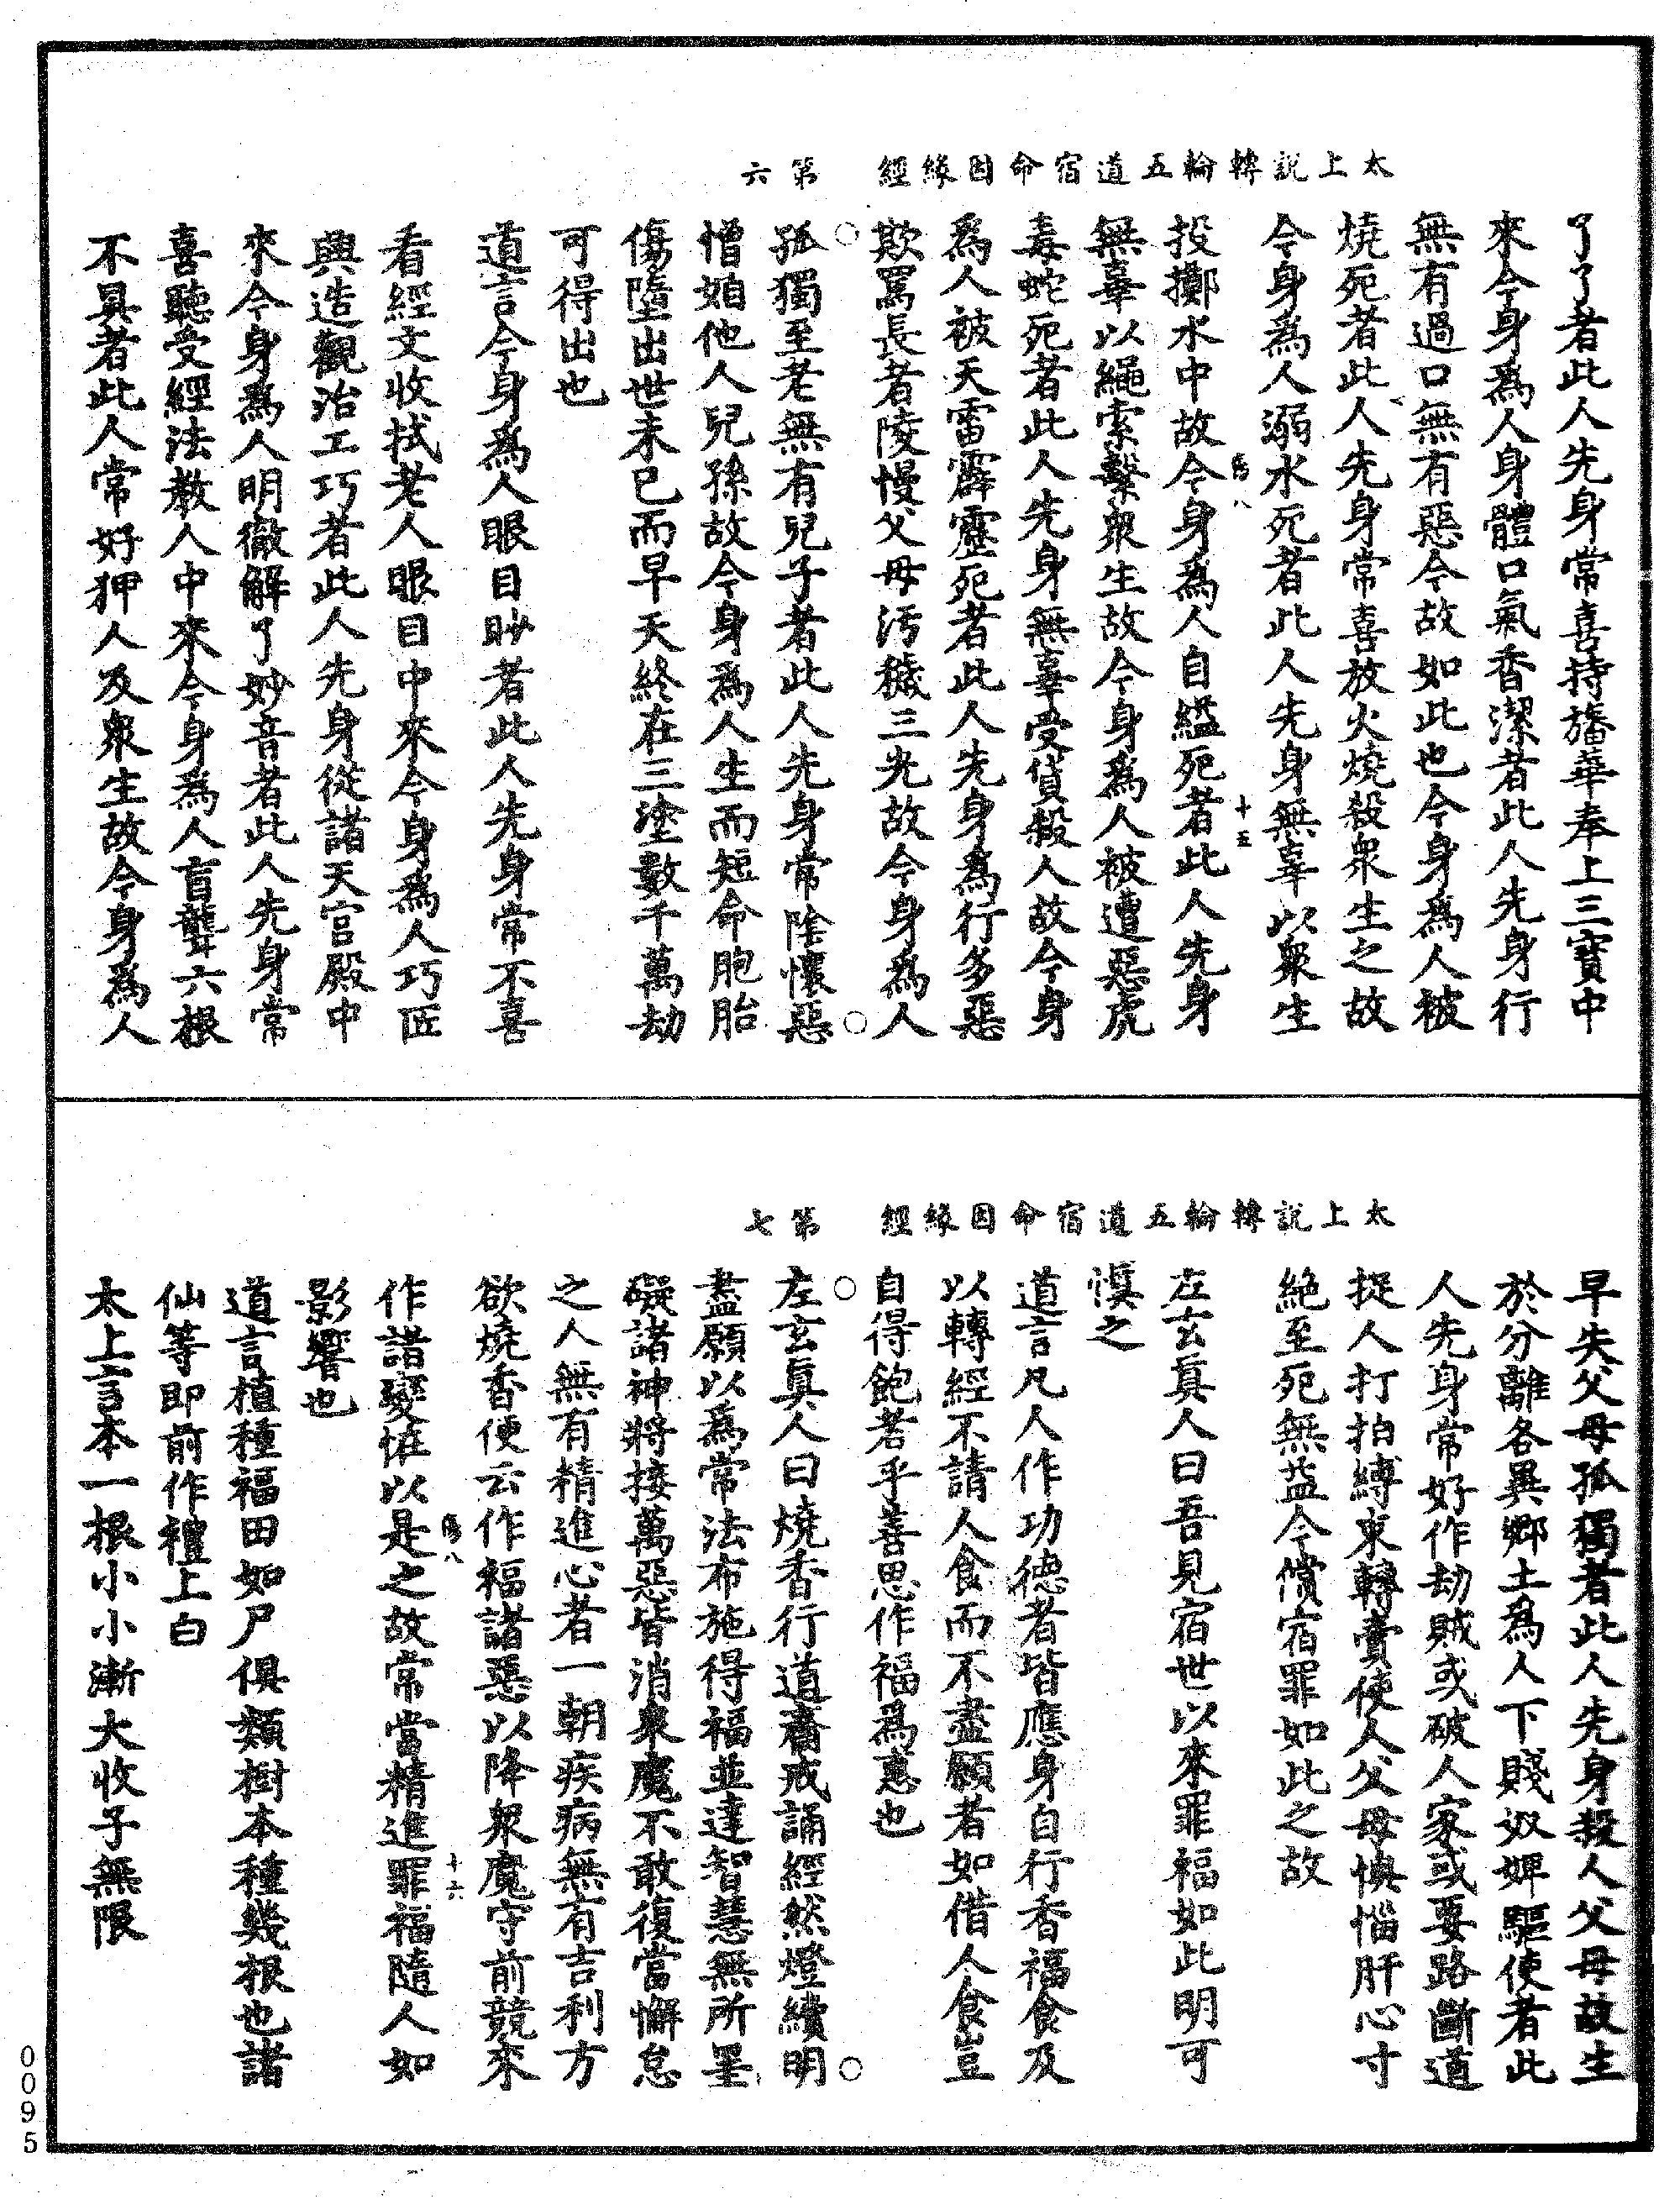 太上說轉輪五道宿命因緣經　第六
了了者此人先身常喜持旛華奉上三寶中
來今身爲人身體口氣香潔者此人先身行
無有過口無有惡今故如此也今身爲人被
燒死者此人先身常喜放火燒殺衆生之故
今身爲人溺水死者此人先身無辜以衆生
投擲水中故今身爲人自縊死者此人先身
無辜以繩索繫衆生故今身爲人被遭惡虎
毒蛇死者此人先身無辜受貨殺人故今身
爲人被天雷霹靂死者此人先身爲行多惡
欺罵長者陵慢父母汚穢三光故今身爲人
孤獨至老無有兒子者此人先身常陰懷惡
憎妲他人兒孫故今身爲人生而短命胞胎
傷墮出世未已而早夭終在三塗數千萬劫
可得出也
道言今身爲人眼目眇者此人先身常不喜
看經文收拭老人眼目中來今身爲人巧匠
興造觀治工巧者此人先身從諸天宫殿中
來今身爲人明徹解了妙音者此人先身常
喜聽受經法教人中來今身爲人盲聾六根
不具者此人常好狎人及衆生故今身爲人
八
十五
太上說轉輪五道宿命因緣經　第七
早失父母孤獨者此人先身殺人父母故生
於分離各異鄉土爲人下賤奴婢驅使者此
人先身常好作劫賊或破人家或要路斷道
捉人打拍縛束轉賣使人父母懊惱肝心寸
絕至死無益今償宿罪如此之故
左玄眞人曰吾見宿世以來罪福如此明可
愼之
道言凡人作功德者皆應身自行香福食及
以轉經不請人食而不盡願者如借人食豈
自得飽若乎善思作福爲惠也
左玄眞人曰燒香行道齋戒誦經然燈續明
盡願以爲常法布施得福並達智慧無所罣
礙諸神將接萬惡皆消衆魔不敢復當懈怠
之人無有精進心者一朝疾病無有吉利方
欲燒香便云作福諸惡以降衆魔守前競來
作諸變恠以是之故常當精進罪福隨人如
影響也
道言植種福田如尸俱類樹本種幾根也諸
仙等即前作禮上白
太上言本一根小小漸大收子無限
八
十六
0095